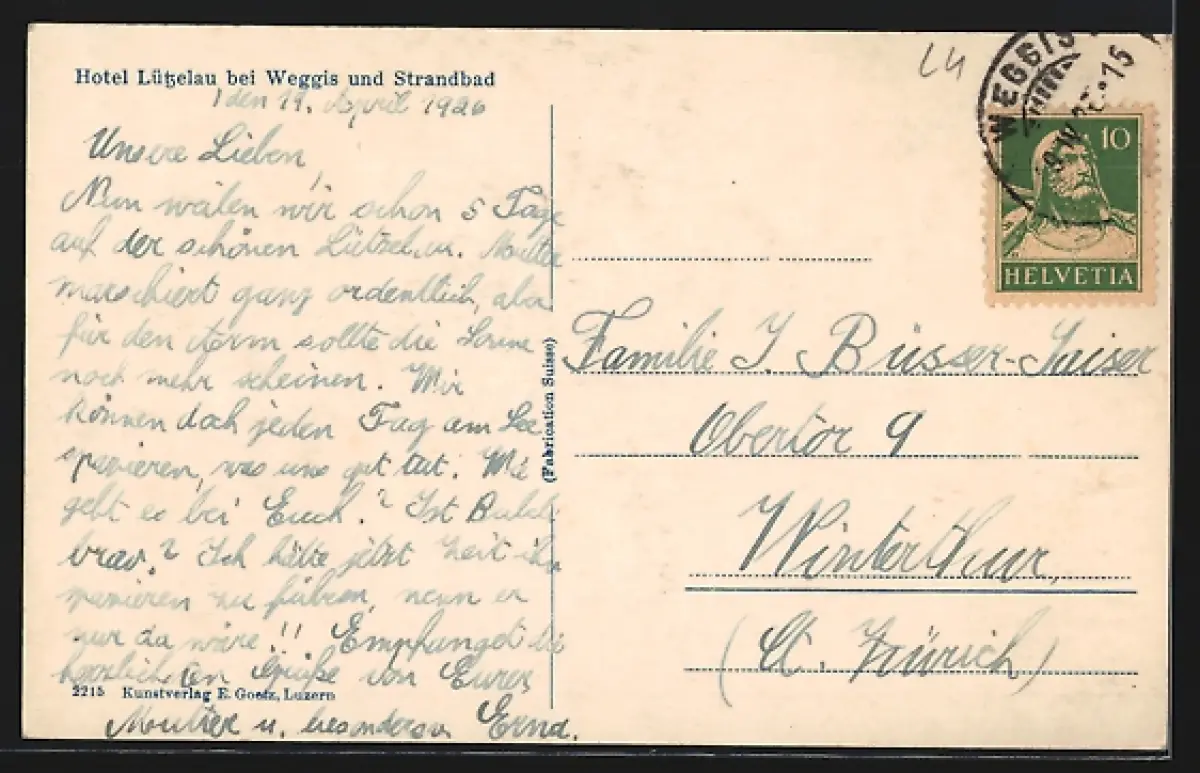 Hotel Lützelau bei Weggis und Strandbad
den 11. April 1926
Unsere Lieben,
Nun weilen wir schon 5 Tage
auf der schönen Lützelau. Mutter
marschiert ganz ordentlich, aber
für den Arm sollte die Sonne
noch mehr scheinen. Wir
können doch jeden Tag am See
spazieren, was uns gut tut. Wie
geht es bei Euch? Ist Bubi
brav? Ich hätte jetzt Zeit ihn
spazieren zu führen, wenn er
nur da wäre!! Empfanget die
herzlichsten Grüße von Eurer
2215 Kunstverlag E. Goetz, Luzern
Mutter u. besonders
(Fabrication Suisse)
LU
WEGGIS
10
HELVETIA
Familie J. Büsser-Suiser
Obertor 9
Winterthur,
(Ct. Zürich)